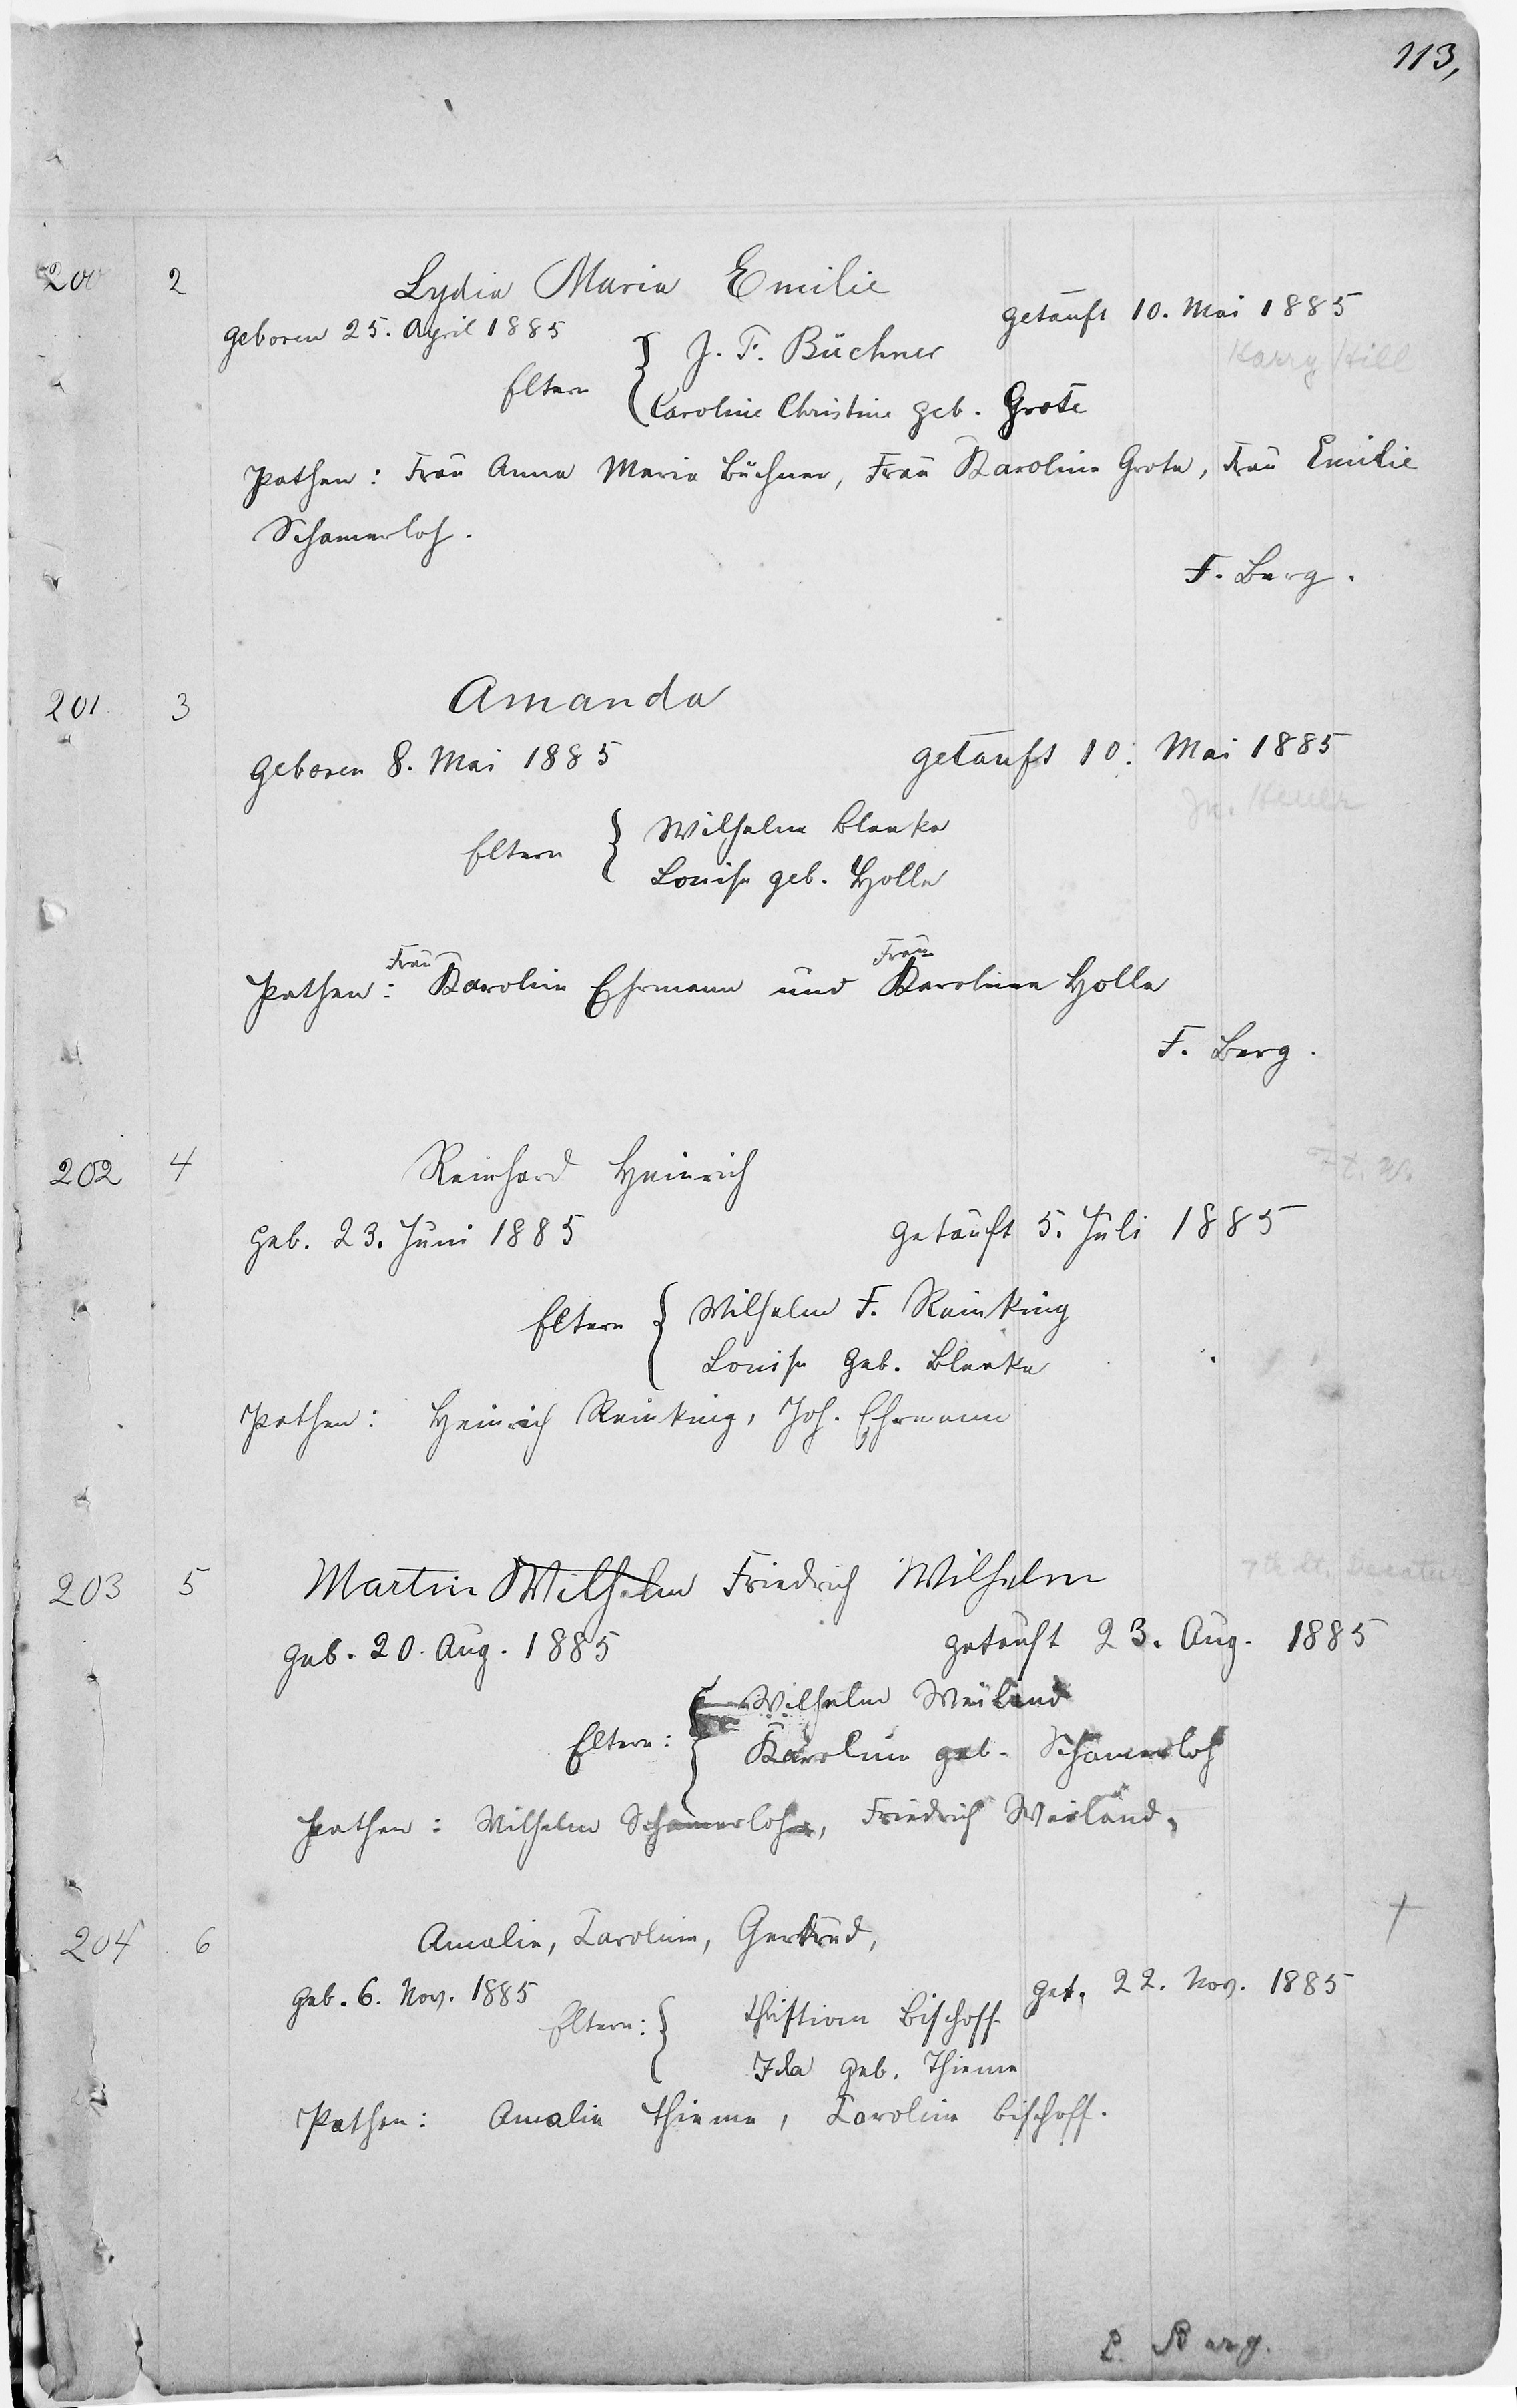 113,
200 2 Lydia Maria Emilie
geboren 25. April 1885 getauft 10. Mai 1885
Harry Hill
Eltern { J. F. Büchner
Caroline Christine geb. Grote
Pathen: Frau Anna Maria Büchner, Frau Karoline Grote, Frau Emilie
Schamerloh.
F. Berg.
201 3 Amanda
geboren 8. Mai 1885 getauft 10. Mai 1885
Eltern { Wilhelm Blanke
Louise geb. Holle
Pathen: Frau Karoline Ehrmann und Frau Karoline Holle
F. Berg.
202 4 Reinhard Heinrich
Ft. W.
geb. 23. Juni 1885 getauft 5. Juli 1885
Eltern { Wilhelm F. Reinking
Louise geb. Blanke
Pathen: Heinrich Reinking, Joh. Ehrmann
203 5 Martin Wilhelm Friedrich Wilhelm
7th St. Decatur
geb. 20. Aug. 1885 getauft 23. Aug. 1885
Eltern: { Wilhelm Weiland
Karoline geb. Schamerloh
Pathen: Wilhelm Schamerloh, Friedrich Weiland,
204 6 Amalie, Caroline, Gertrud,
geb. 6. Nov. 1885 get. 22. Nov. 1885
Eltern: { Christian Bischoff
Ida geb. Thieme
Pathen: Amalie Thieme, Caroline Bischoff.
Berg.